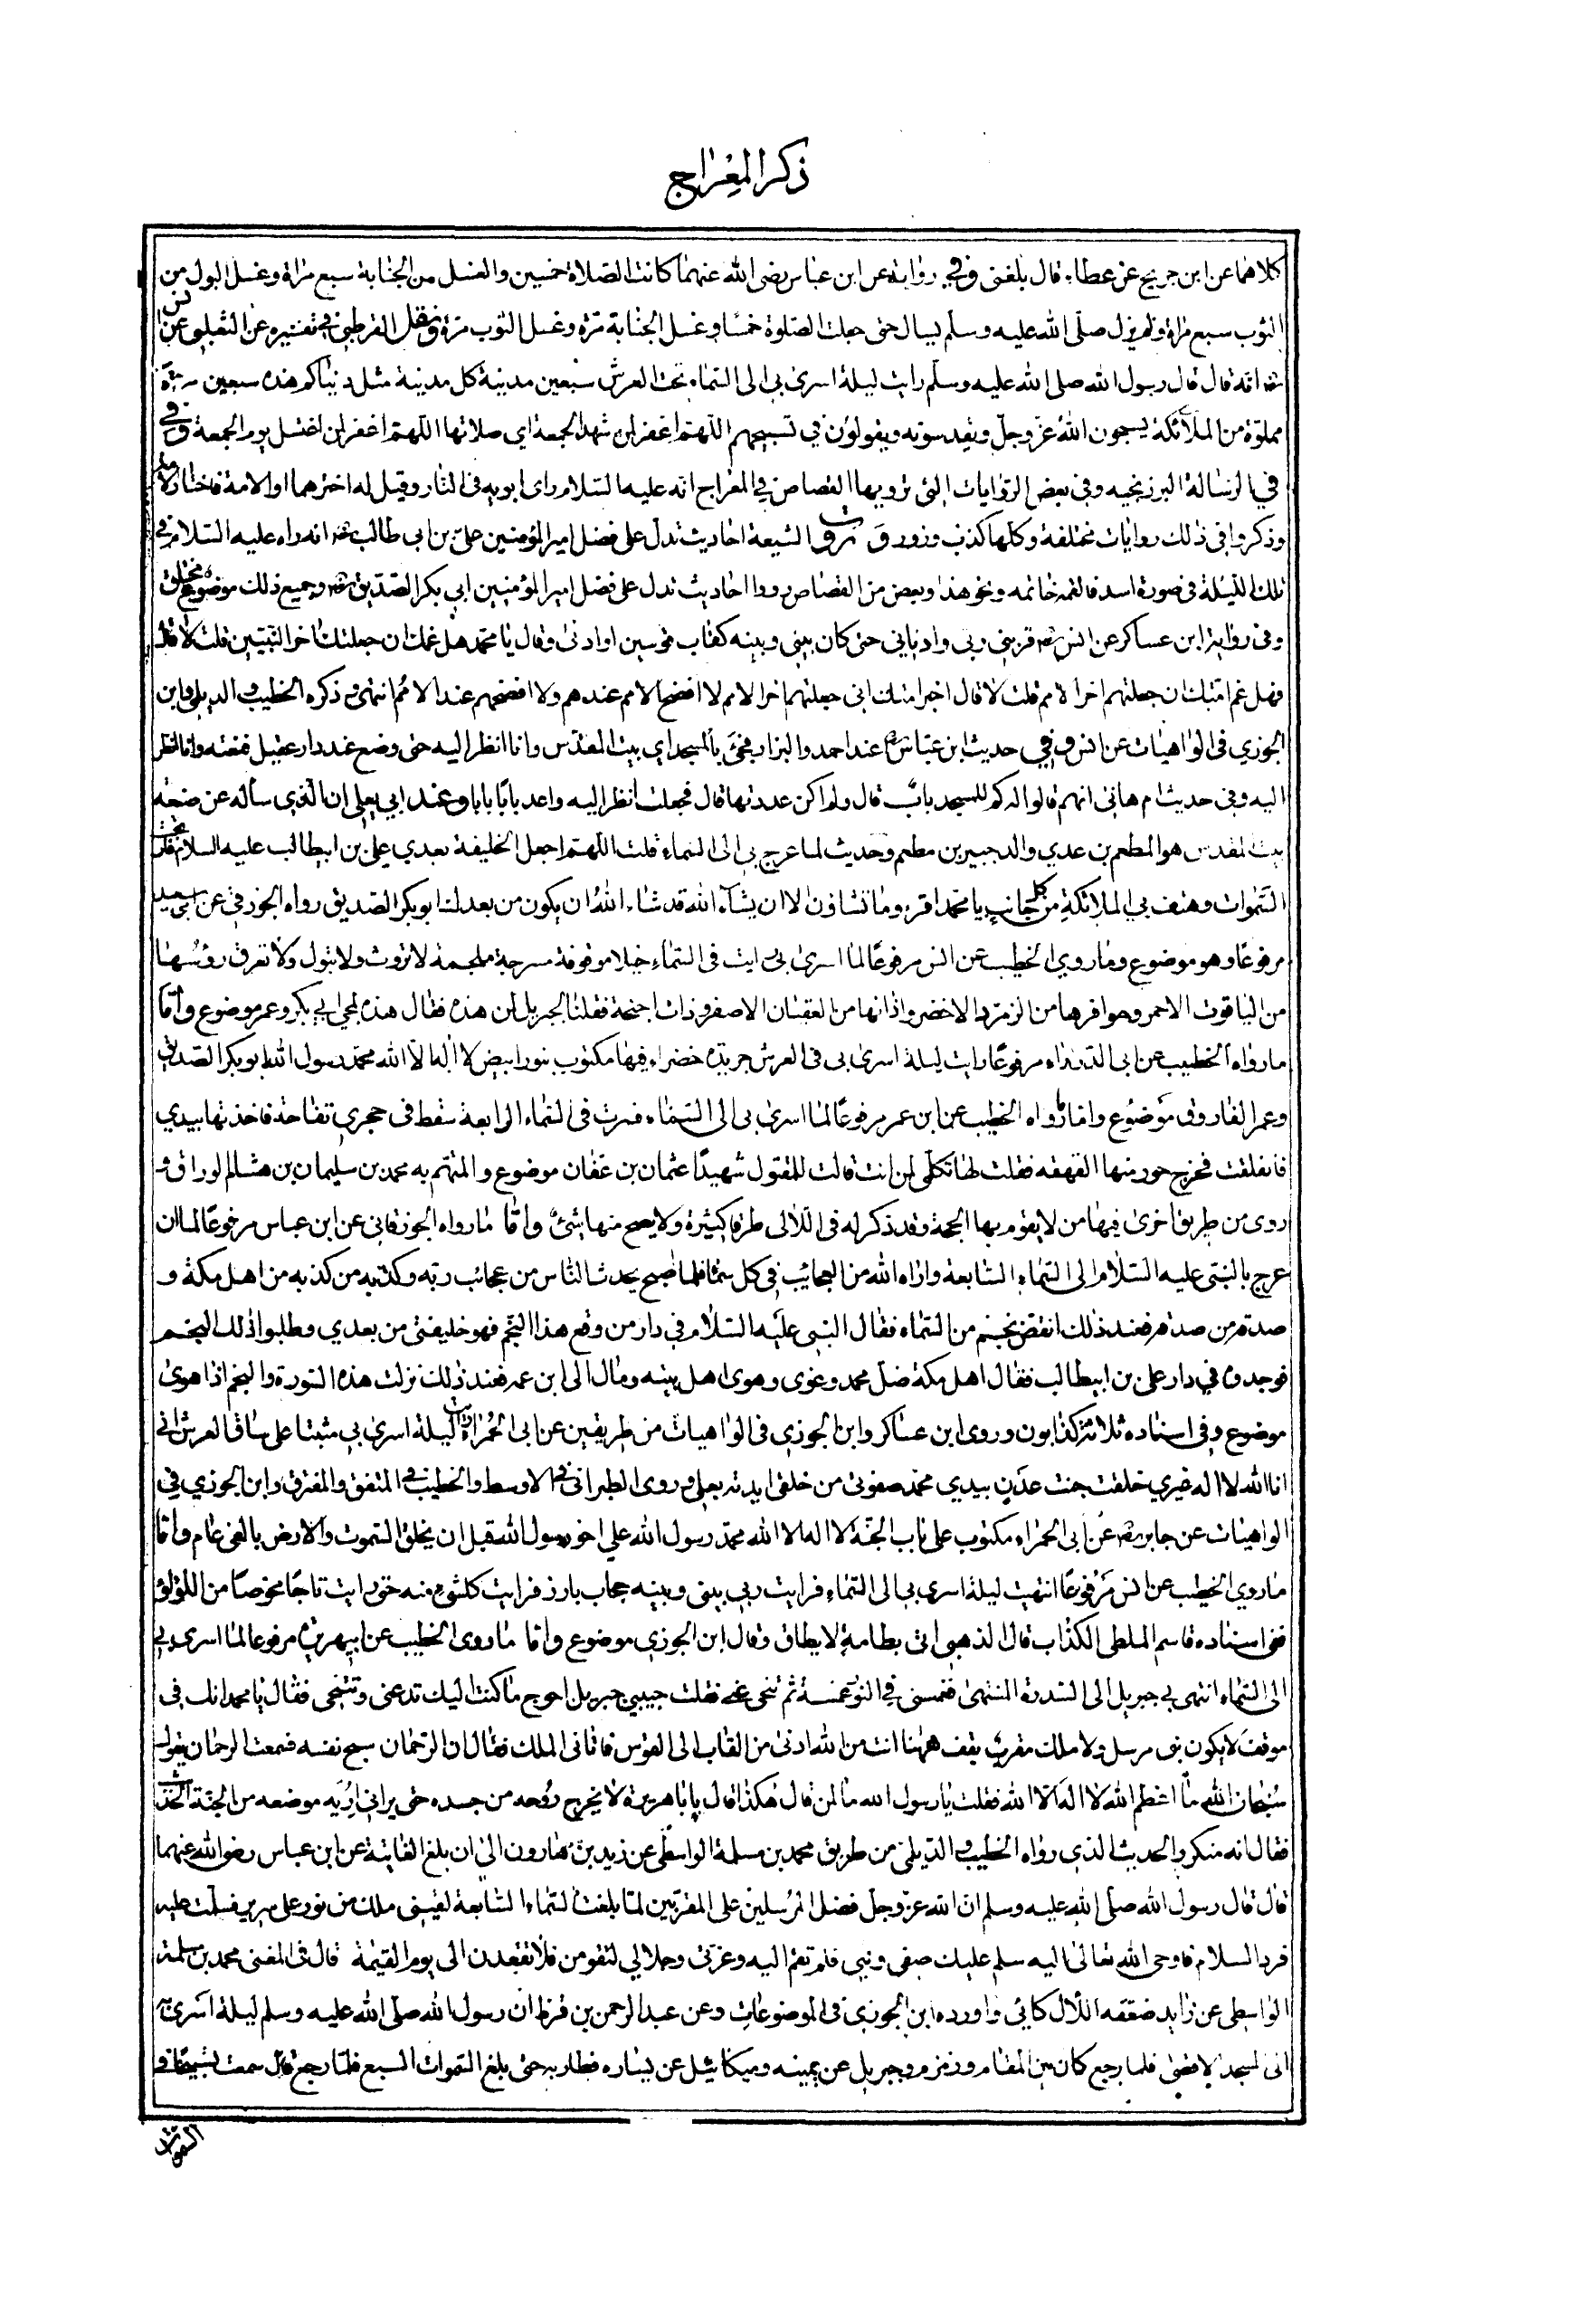 ذكر المعراج
كلاهما عن ابن جريح عن عطاء قال بلغنى وفي رواية عن ابن عباس رضى الله عنهما كانت الصلاة خمسين والغسل من الجنابة سبع مراة وغسل البول من
الثوب سبع مراة ولم يزل صلى الله عليه وسلم يسال حتى جعلت الصلوة خمسًا وغسل الجنابة مرة وغسل الثوب مرة ونقل القرطبي في تفسيره عن الثعلبى عن انس
انه قال قال رسول الله صلى الله عليه وسلم رايت ليلة اسرى بي الى السماء تحت العرش سبعين مدينة كل مدينة مثل دنياكم هذه سبعين مرة
مملوة من الملائكة يسبحون الله عز وجل ويقدسونه ويقولون في تسبيحهم اللهم اغفر لمن شهد الجمعة اي صلاتها اللهم اغفر لمن اغتسل يوم الجمعة وفي
في الرسالة البرزنجيه وفى بعض الروايات التى ترويها القصاص في المعراج انه عليه السلام راى ابويه فى النار وقيل له اخترهما او الامة فاختار
وذكروا فى ذلك روايات مختلفة وكلها كذب وزور و الشيعة احاديث تدل على فضل امير المؤمنين على بن ابى طالب انه راه عليه السلام في
تلك الليلة فى صورة اسد فالقمه خاتمه ونحو هذا وبعض من القصاص رووا احاديث تدل على فضل امير المؤمنين ابي بكر الصديق وجميع ذلك موضوع مختلق
وفى رواية ابن عساكر عن انس قربنى ربى وادنانى حتى كان بينى وبينه كقاب قوسين او ادنى وقال يا محمد هل غمك ان جعلتك اخر النبيين قلت لا قال
فهل غم امتك ان جعلتهم اخر الامم قلت لا قال اخبر امتك انى جعلتهم اخر الامم لا افضح الامم عندهم ولا افضحهم عند الامم انتهى ذكره الخطيب و الديلى وابن
الجوزي فى الواهيات عن انس وفي حديث ابن عباس عند احمد والبزار فجئ بالمسجد اي بيت المقدس وانا انظر اليه حتى وضع عند دار عقيل فنعته وانا انظر
اليه وفى حديث ام هانى انهم قالوا له كم للمسجد باب قال ولم اكن عددتها قال فجعلت انظر اليه واعد بابًا بابا وعند ابي يعلى ان الذي سأله عن صفة
بيت المقدس هو المطعم بن عدي والد جبير بن مطعم وحديث لما عرج بي الى السماء قلت اللهم اجعل الخليفة بعدي على بن ابيطالب عليه السلام
السموات وهتف بي الملائكة من كل جانب يا محمد اقرء وما تشاؤن الا ان يشاء الله قد شاء الله ان يكون من بعدك ابو بكر الصديق رواه الجوزقي عن ابى سعيد
مرفوعًا وهو موضوع وما روي الخطيب عن انس مرفوعًا لما اسرى بى رايت فى السماء خيلا موقوفة مسرجة ملجمة لا تروث ولا تبول ولا تعرق رؤسها
من الياقوت الاحمر وحوافرها من الزمرد الاخضر واذانها من العقيان الاصفر وذات اجنحة فقلت لجبريل لمن هذه فقال هذه لمحبى ابي بكر وعمر موضوع وأما
ما رواه الخطيب عن ابى الدرداء مرفوعًا رايت ليلة اسرى بى فى العرش جريدة خضراء فيها مكتوب بنور ابيض لا اله الا الله محمد رسول الله ابو بكر الصديق
وعمر الفاروق موضوع واما رواه الخطيب عن ابن عمر مرفوعًا لما اسرى بى الى السماء فصرت فى السماء الرابعة سقط فى حجري تفاحة فاخذتها بيدي
فانفلقت فخرج حور منها القهقهه فقلت لها تكلمى لمن انت قالت للمقتول شهيدًا عثمان بن عفان موضوع والمتهم به محمد بن سليمان بن هشام الوراق و
روى من طريق اخرى فيها من لا يقوم بها الحجة وقد ذكر له فى اللالى طرقا كثيرة ولا يصح منها شئ وأما ما رواه الجوزقانى عن ابن عباس مرفوعًا لما ان
عرج بالنبى عليه السلام الى السماء السابعة واراه الله من العجائب في كل سماء فلما اصبح يحدث الناس من عجائب ربه وكذبه من كذبه من اهل مكة و
صدقه من صدقه فعند ذلك انقض نجم من السماء فقال النبى عليه السلام في دار من وقع هذا النجم فهو خليفتى من بعدي وطلبوا ذلك النجم
فوجدوه في دار على بن ابيطالب فقال اهل مكة ضل محمد وغوى وهوى اهل بيته ومال الى ابن عمه فعند ذلك نزلت هذه السورة والنجم اذا هوى
موضوع وفى اسناده ثلاثة كذابون وروى ابن عساكر وابن الجوزي فى الواهيات من طريقين عن ابى الحمراء رايت ليلة اسرى بي مثبتا على ساق العرش انى
انا الله لا اله غيري خلقت جنت عدن بيدي محمد صفوتى من خلقى ايدته بعلى وروى الطبرانى في الاوسط والخطيب في المتفق والمفترق وابن الجوزي في
الواهيات عن جابر عن ابى الحمراء مكتوب على باب الجنة لا اله الا الله محمد رسول الله علي اخو رسول الله قبل ان يخلق السموت والارض بالفى عام واما
ما روي الخطيب عن انس مرفوعًا انتهيت ليلة اسرى بى الى السماء فرايت ربي بينى وبينه حجاب بارز فرايت كلشئ منه حتى رايت تاجًا مخوصًا من اللؤلؤ
ففى اسناده قاسم الملطى الكذاب قال الذهبى اتى بطامة لا يطاق وقال ابن الجوزي موضوع واما ما روى الخطيب عن ابيهريرة مرفوعا لما اسرى بي
الى السماء انتهى بي جبريل الى السدرة المنتهى فغمسنى في النور غمسة ثم تنحى عنى فقلت حبيبي جبريل احوج ما كنت اليك تدعنى وتتنحى فقال يا محمد انك فى
موقف لا يكون نبى مرسل ولا ملك مقرب يقف ههنا انت من الله ادنى من القاب الى القوس فاتانى الملك فقال ان الرحمان سبح نفسه فسمعت الرحمان يقول
سبحان الله ما اعظم الله لا اله الا الله فقلت يا رسول الله ما لمن قال هكذا قال يا باهريرة لا يخرج روحه من جسده حتى يرانى او يريه موضعه من الجنة
فقال انه منكر والحديث الذي رواه الخطيب و الديلمى من طريق محمد بن مسلمة الواسطى عن زيد بن هارون الى ان بلغ الغاية عن ابن عباس رضى الله عنهما
قال قال رسول الله صلى الله عليه وسلم ان الله عز وجل فضل المرسلين على المقربين لما بلغت السماء السابعة لقينى ملك من نور على سرير فسلمت عليه
فرد السلام فاوحى الله تعالى اليه سلم عليك صفى ونبى فلم تقم اليه وعزتى وجلالي لتقومن فلا تقعدن الى يوم القيمة قال فى المغنى محمد بن مسلمة
الواسطى عن زايد ضعفه اللال كائى واورده ابن الجوزي فى الموضوعات وعن عبد الرحمن بن قرط ان رسول الله صلى الله عليه وسلم ليلة اسرى به
الى المسجد الاقصى فلما رجع كان بين المقام وزمزم وجبريل عن يمينه وميكائيل عن يساره فطار به حتى بلغ السموات السبع فلما رجع قال سمعت تسبيحًا في
السموات